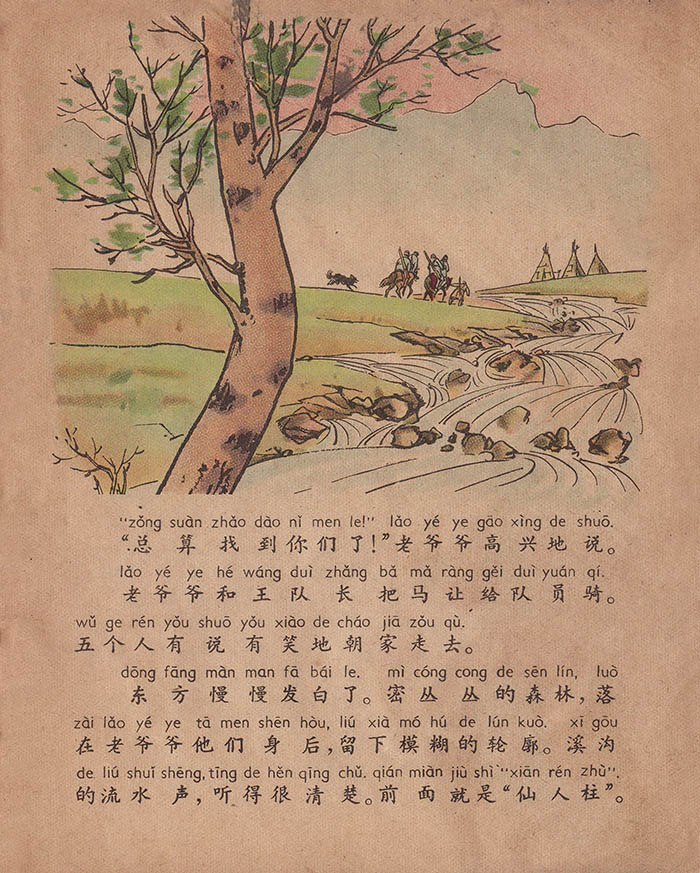 “zǒng suàn zhǎo dào nǐ men le!” lǎo yé ye gāo xìng de shuō.
“总算找到你们了!”老爷爷高兴地说。
lǎo yé ye hé wáng duì zhǎng bǎ mǎ ràng gěi duì yuán qí.
老爷爷和王队长把马让给队员骑。
wǔ ge rén yǒu shuō yǒu xiào de cháo jiā zǒu qù.
五个人有说有笑地朝家走去。
dōng fāng màn man fā bái le. mì cóng cong de sēn lín, luò
东方慢慢发白了。密丛丛的森林,落
zài lǎo yé ye tā men shēn hòu, liú xià mó hú de lún kuò. xī gōu
在老爷爷他们身后,留下模糊的轮廓。溪沟
de liú shuǐ shēng, tīng de hěn qīng chǔ. qián miàn jiù shì “xiān rén zhù”.
的流水声,听得很清楚。前面就是“仙人柱”。